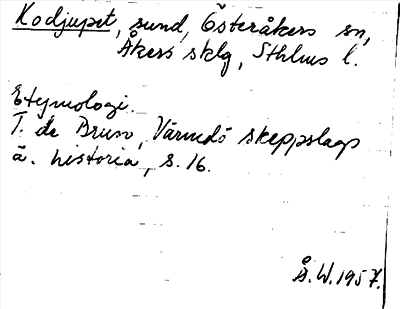 Kodjupet, sund, Österåkers sn,
Åkers sklg, Sthlms l.
Etymologi.
T. de Brun, Värmdö skeppslags
ä. historia, s. 16.
Å.W. 1957.